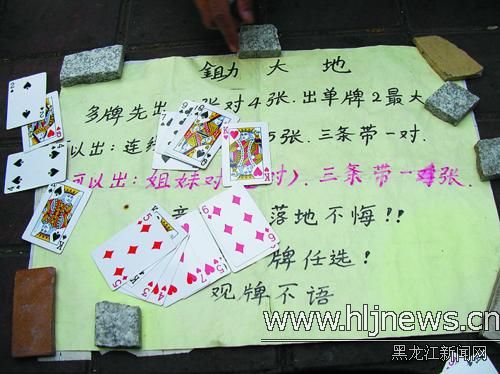 鉏力 大 地
多牌先出 张对4张.出单牌2最大
以出:连 5张.三条带一对.
可以出:姐妹对 对).三条带一 张.
落地不悔!!
牌任选!
观牌不语
www.hljnews.cn
黑龙江新闻网